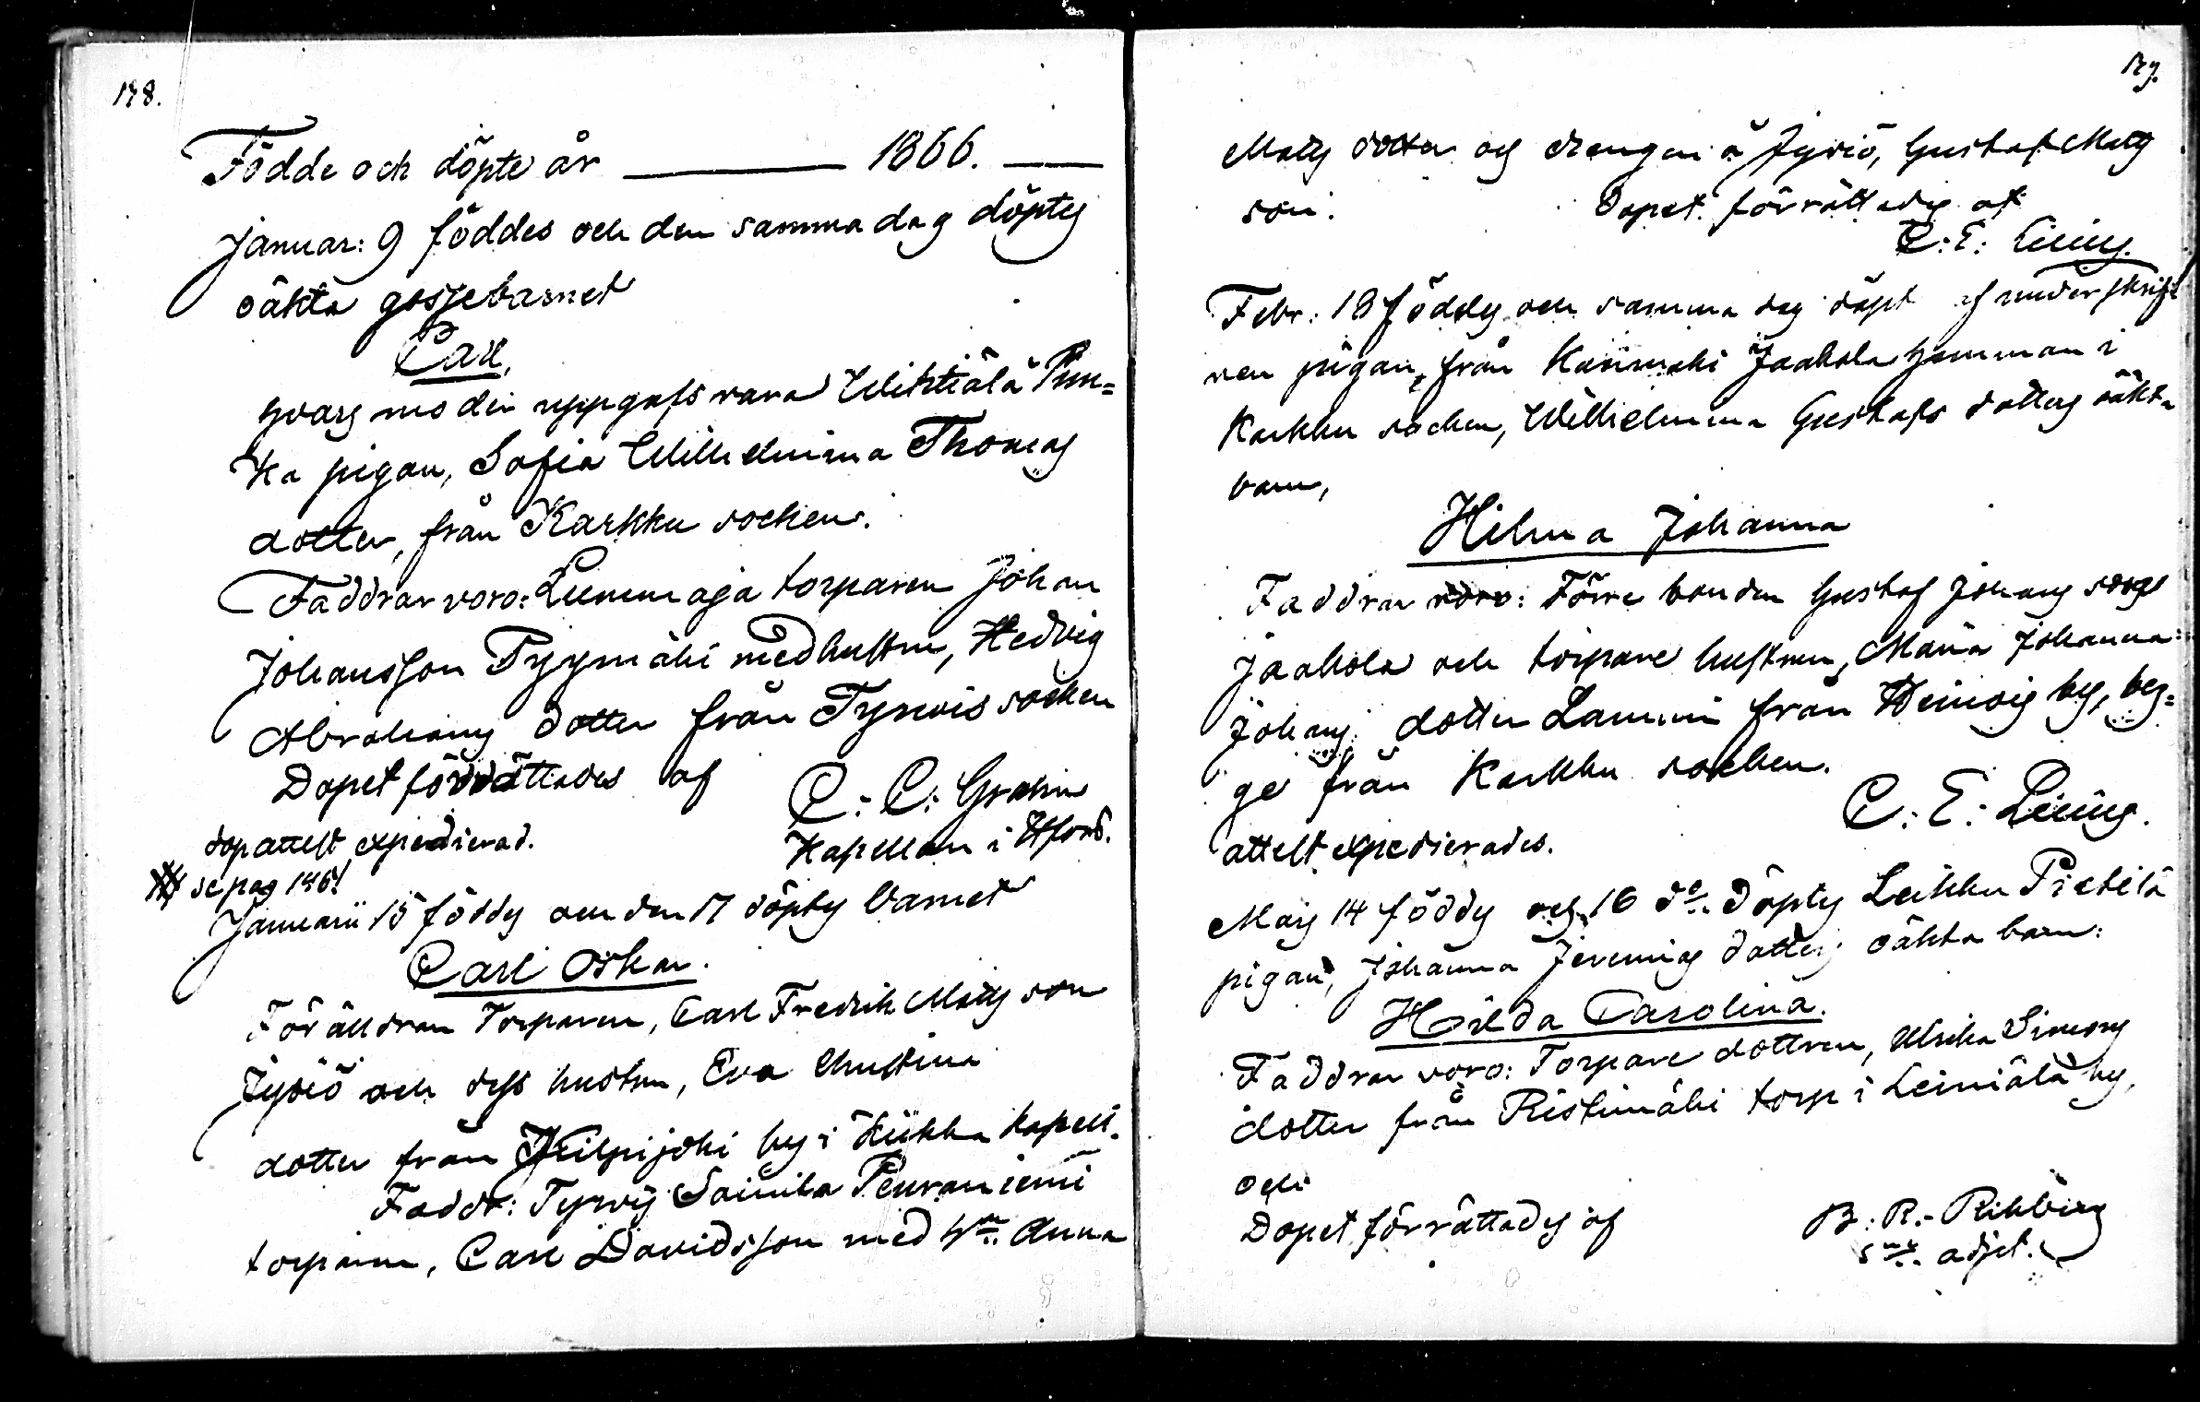 178.
Födde och döpte år — 1866. —
Januar: 9 föddes och den samma dag döptes
oäkta gossebarnet
Carl,
hvars moder uppgafs vara Wihtiälä Pun=
ka pigan, Sofia Wilhelmina Thomas
dotter, från Karkku socken.
Faddrar voro: Lummaja torparen Johan
Johansson Pyymäki med hustru, Hedvig
Abrahams dotter från Tyrwis socken
Dopet förrättades af C: C: Grahn
Kapellan i
dopattest expedierad.
se pag 186!
Januarii 15 föddes och den 17 döptes barnet
Carl Oskar.
Föräldrar Torparen, Carl Fredrik Mats son
Jyriö och dess hustru, Eva Christina
dotter från Kilpijoki by i Kiikka kapell.
Faddr: Tyrvis Soinila Peuraniemi
torparen, Carl Davidsson med hu Anna
179.
Mats dotter och drängen å Jyriö, Gustaf Mats
son. Dopet förrättades af
C: E:
Febr: 18 föddes och samma dag döpt af underskrift
ven pigan, från Karimäki Jaakola hemman i
Karkku socken, Wilhelmina Gustafs dotters oäkta
barn,
Hilma Johanna
Faddrar voro: Förre bonden Gustaf Johans son
Jaakola och torpare hustrun, Maria Johanna
Johans dotter Lammi från Heinois by, beg=
ge från Karkku socken.
C: E:
attest expedierades.
Maij 14 föddes och 16 do. döptes Leikku Pietilä
pigan, Johanna Jeremias dotters oäkta barn:
Hilda Carolina.
Faddrar voro: Torpare dottren, Ulrika Simons
dotter från Ristimäki torp i Leiniälä by,
och
Dopet förrättades af B: R: Rikberg
adjct.